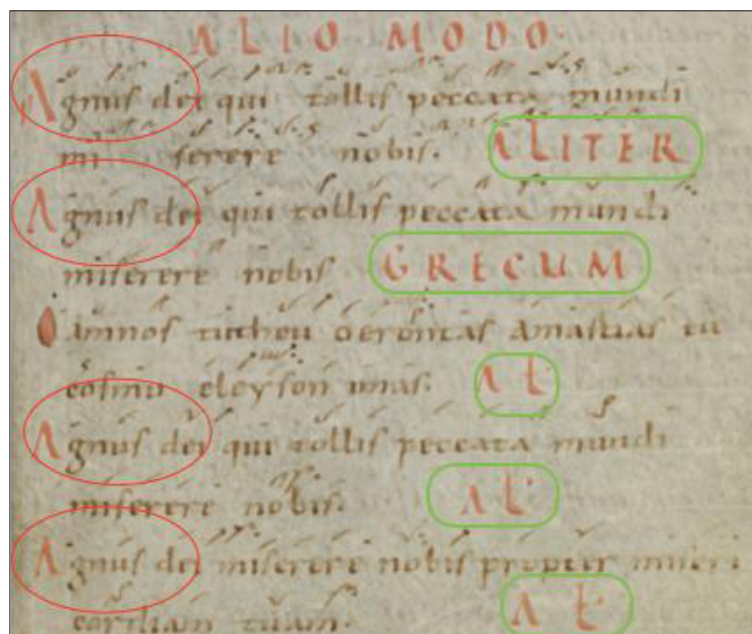 ALIO MODO
Agnus dei qui tollis peccata mundi
miserere nobis. ALITER
Agnus dei qui tollis peccata mundi
miserere nobis GRECUM
O amnos tutheu oerontas amastias tu
cosmu eleyson imas. AL
Agnus dei qui tollis peccata mundi
miserere nobis. AL
Agnus dei miserere nobis propter miseri
cordiam tuam. AL